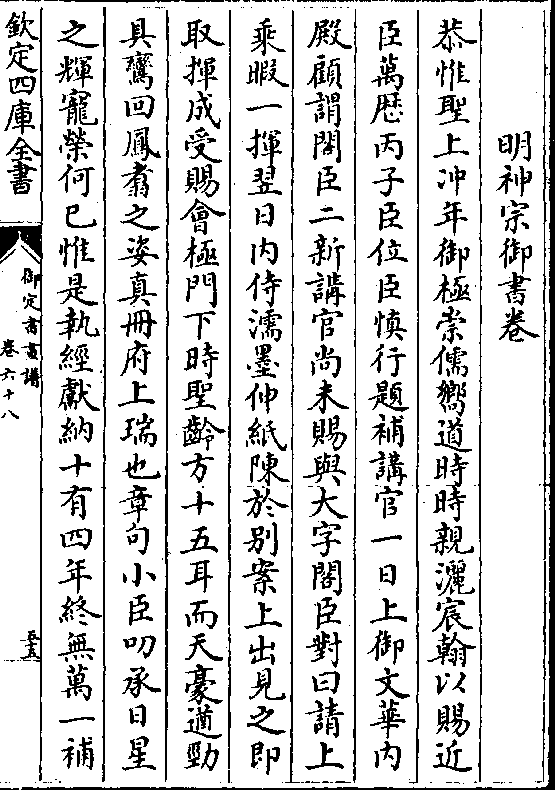 明神宗御書卷
恭惟聖上沖年御極崇儒嚮道時時親灑宸翰以賜近
臣萬厯丙子臣位臣慎行題補講官一日上御文華内
殿顧謂閣臣二新講官尚未賜與大字閣臣對曰請上
乘暇一揮翌日内侍濡墨伸紙陳於别案上出見之即
取揮成受賜會極門下時聖齡方十五耳而天豪遒勁
具鸞回鳳翥之姿真冊府上瑞也章句小臣叨承日星
之輝寵榮何已惟是執經獻納十有四年終無萬一補
欽定四庫全書
御定書畫譜
卷六十八
五五